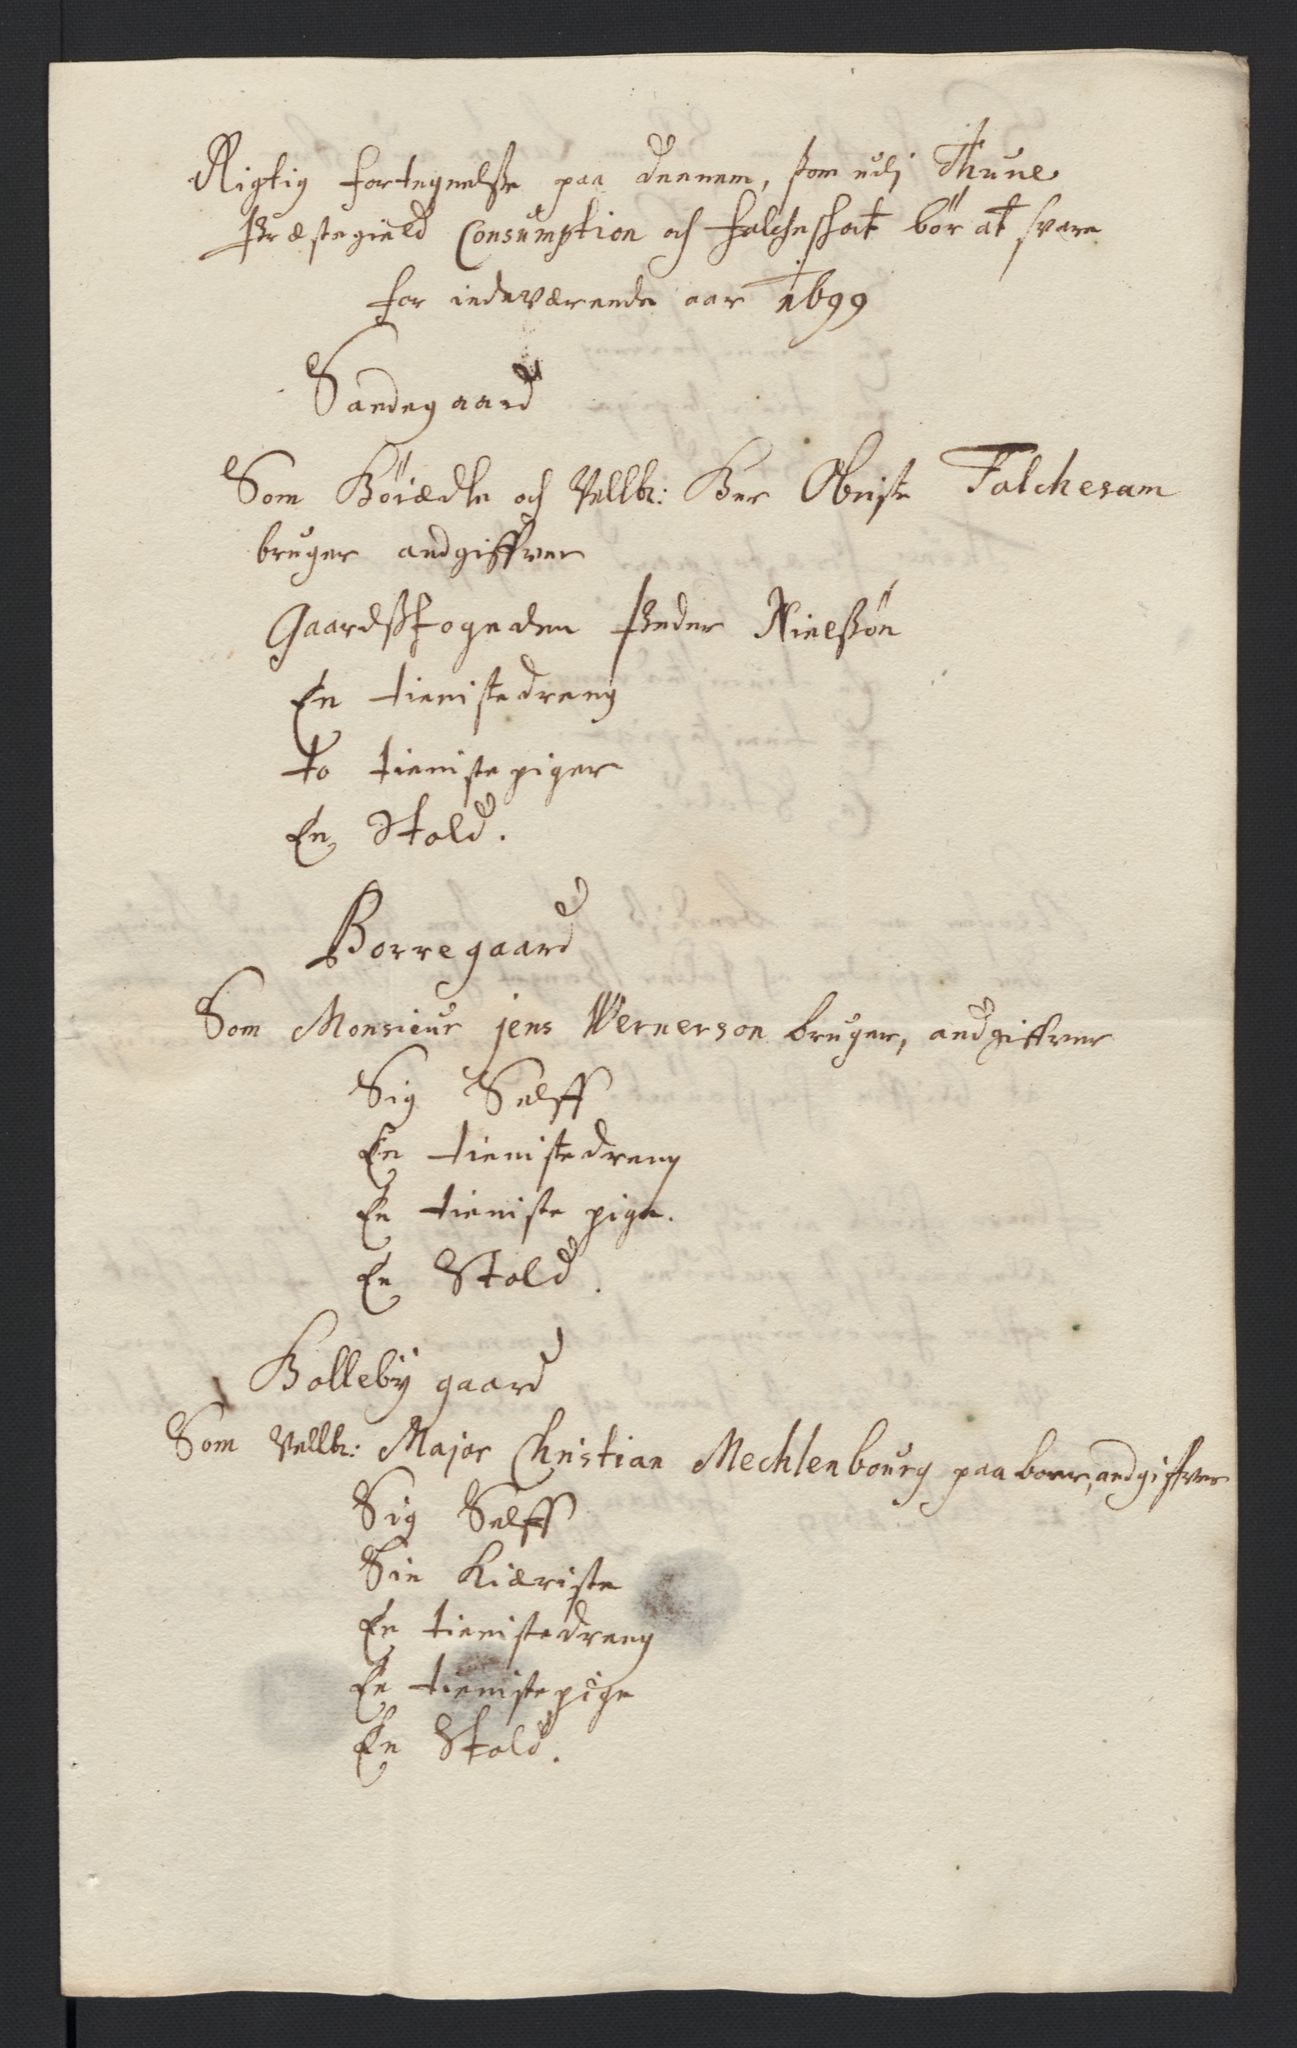 Rigtig fortegnelsse paa dennem, som udj Thune
Præstegield Consumption och folcheskat bör at svare
for indeværende aar 1699
Sandegaard
Som Höiædle och Vellb: Her Obriste Folchersam
bruger andgiffver
Gaardssfogeden Peder Nielssön
En tienistedreng
to tienistepiger
En Stold.
Borregaard
Som Monsieur jens Wernerson bruger, andgiffver
Sig Selff
En tienistedreng
En tieniste pige.
En Stold.
Holleby gaard
Som Vellb: Major Christian Mechlenbourg paa boer, andgiffver
Sig Selff
Sin Kiæriste
En tienistedreng
En tienistepige
En Stold.